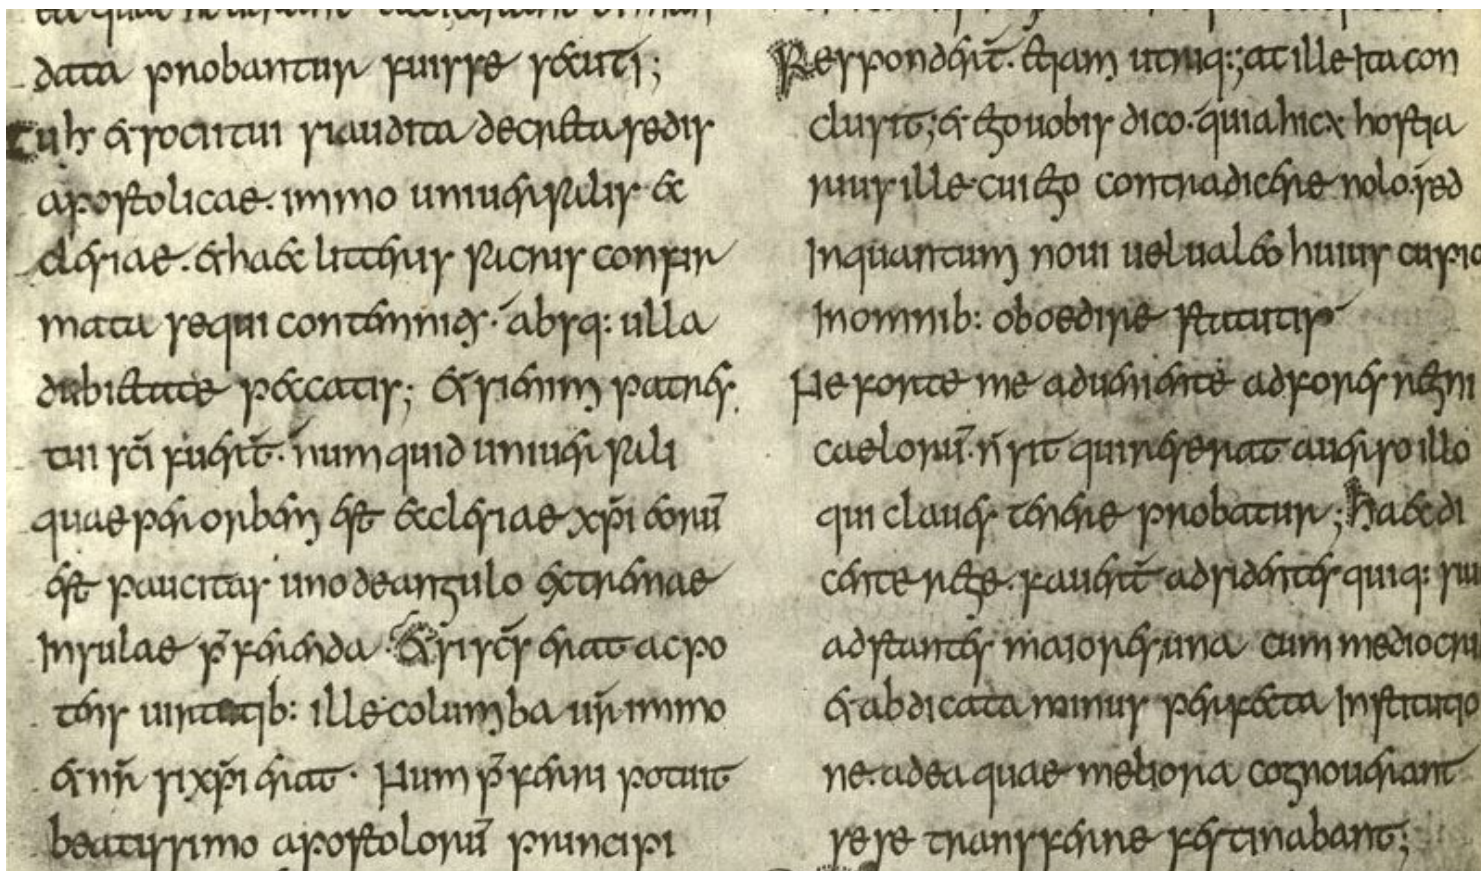 data probantur fuisse secuti;
Tu h̄ et socii tui si audita decreta sedis
apostolicae. immo uniuersalis ec
clesiae. et haec litteris sacris confir
mata sequi contemnitis. absq: ulla
dubietate peccatis; Etsi enim patres
tui sc̄i fuer̄t. num quid uniuersali
quae per orbem est ecclesiae xp̄i eorū
est paucitas uno de angulo extremae
insulae p̄ferenda. Et si sc̄s erat ac po
tens uirtutib: ille columba ur̄ immo
et nr̄ si xp̄i erat. Num p̄ferri potuit
beatissimo apostolorū principi
Responder̄t. etiam utriq:; at ille ita con
clusit; et ego uobis dico. quia hic÷ hostia
rius ille cui ego contradicere nolo. sed
Inquantum noui uel ualeo huius cupio
In omnib: oboedire statutis
Ne forte me adueniente ad fores regni
caelorū. n̄ sit qui reserat auerso illo
qui claues tenere probatur; haec di
cente rege. fauer̄t adsidentes quiq: siue
adstantes maiores, una cum mediocri
et abdicata minus perfecta institutio
ne. ad ea quae meliora cognouerant
sese transferre festinabant;